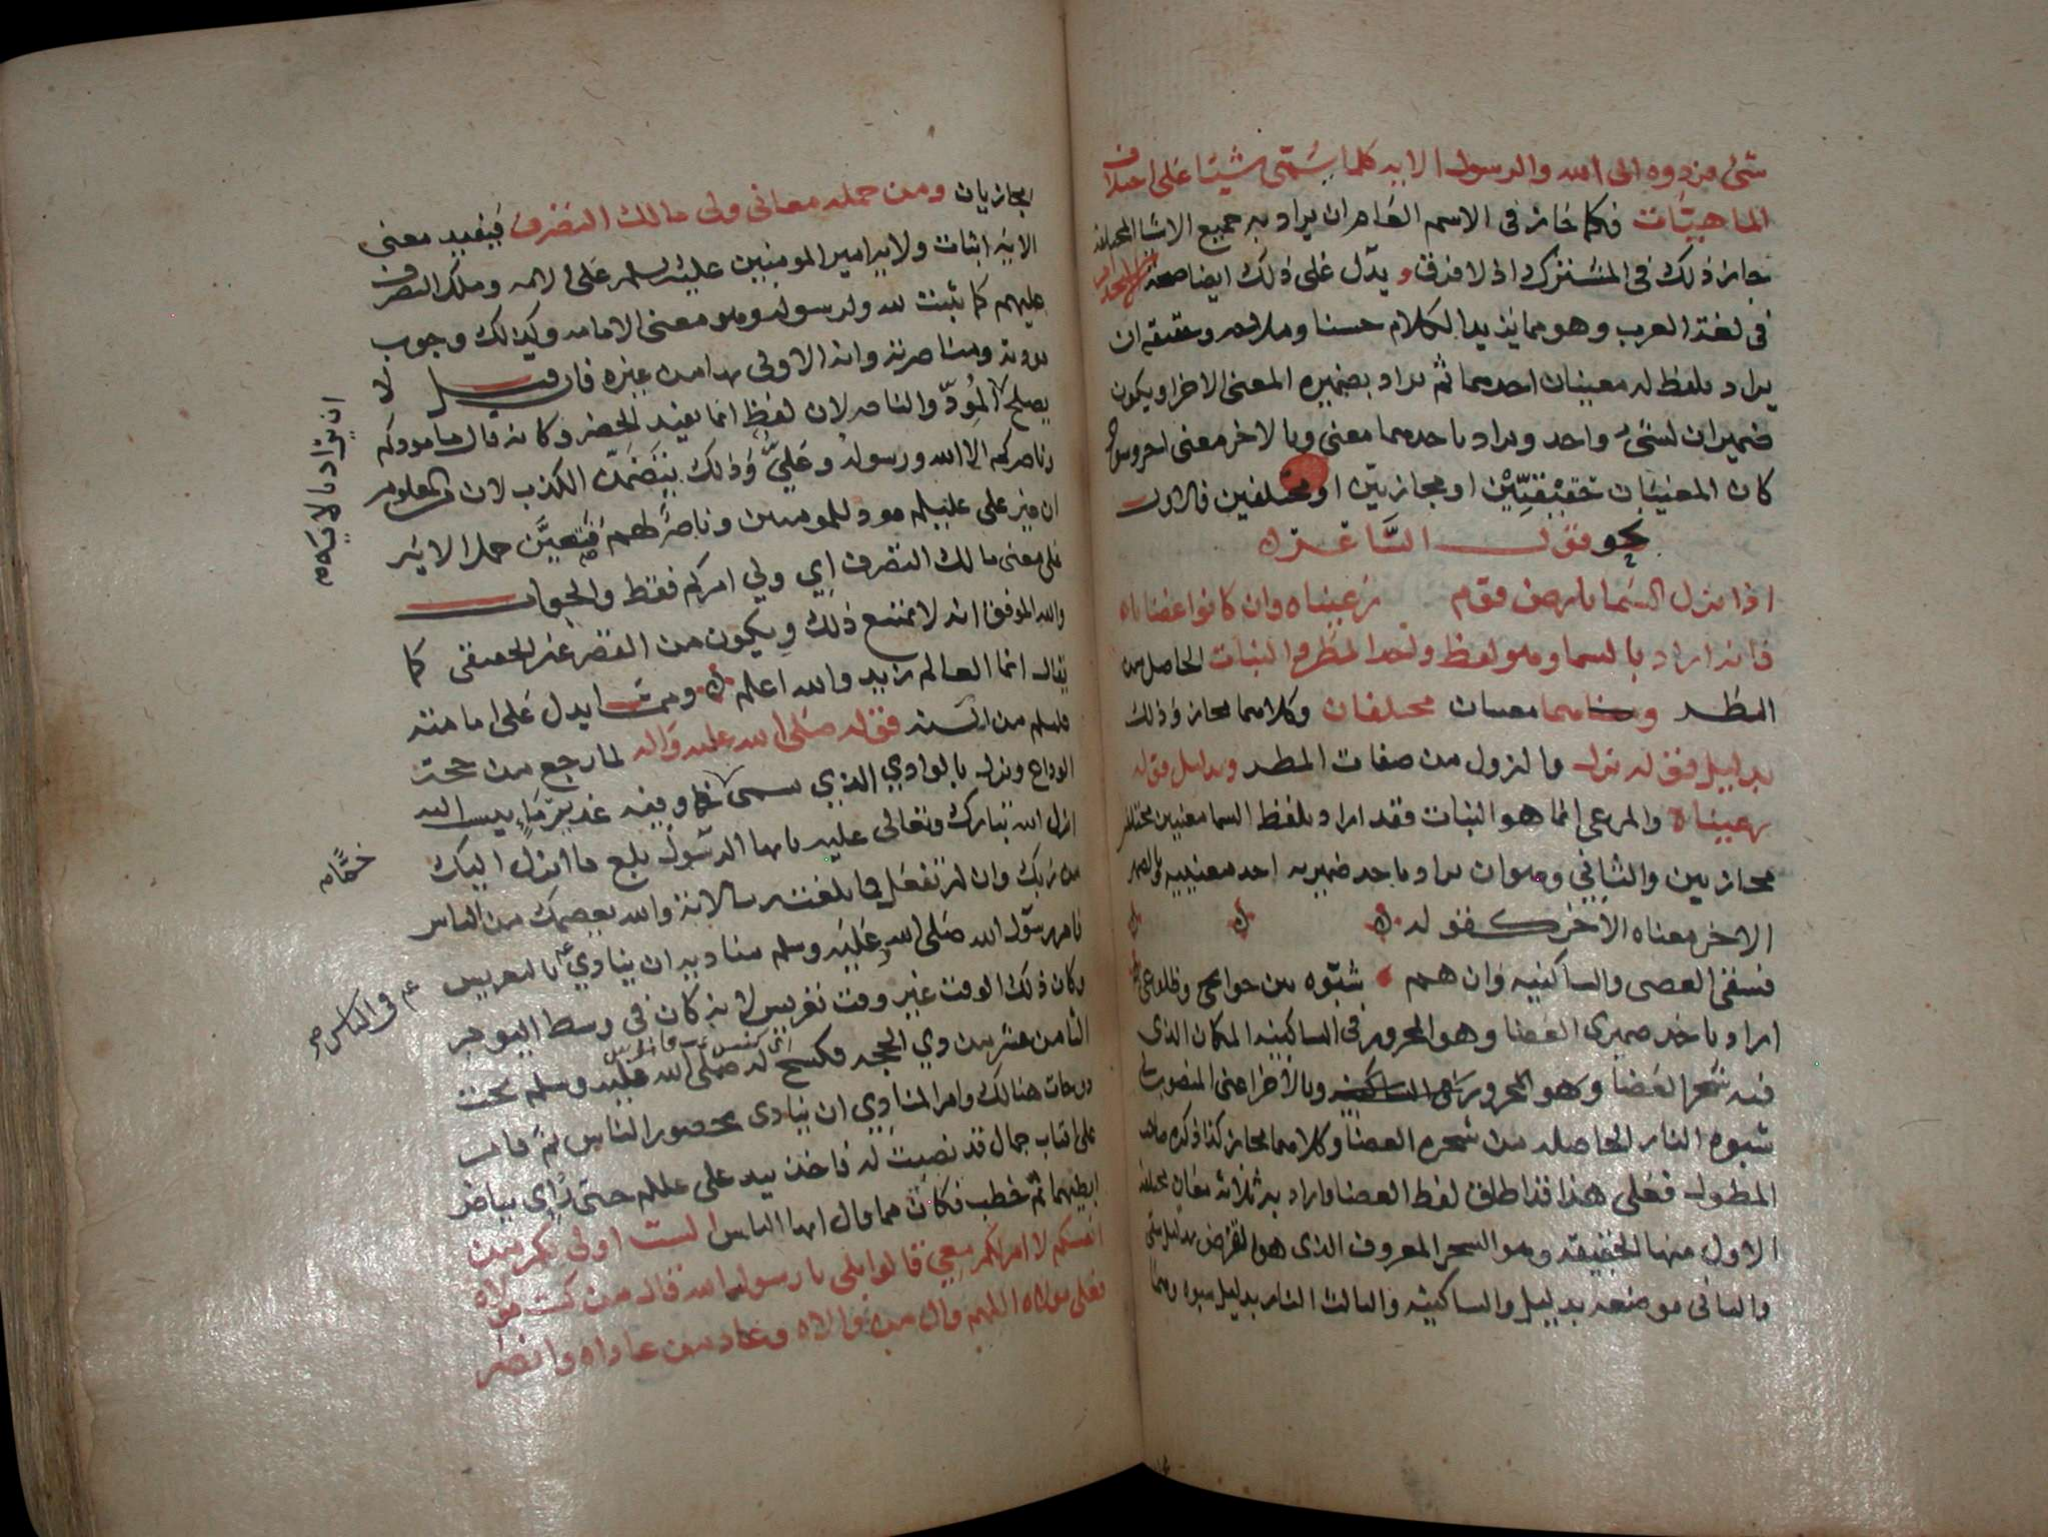 شئ فردوه الى الله والرسول الايه كلما يسمى شيئا على اختلاف
الماهيّات فكما جاز فى الاسم العام ان يراد به جميع الاشيا المختلفه
جاز ذلك فى المشترك اذ لا فرق و يدّل على ذلك ايضا صحة
فى لغة العرب وهو مما يزيد الكلام حسنا وملاحه وحقيقته ان
يراد بلفظ له معنيان احدهما ثم يراد بضميره المعنى الاخر او يكون
ضميران لشئ واحد ويراد باحدهما معنى وبالاخر معنى اخر وسوا
كان المعنيان حقيقيّين او مجازيين او مختلفين فالاول
نحو قول الشاعر
اذا نزل السما بارض قوم رعيناه وان كانوا غضابا
فانه اراد بالسما وهو لفظ واحد المطر والنبات الحاصل من
المطر وهما معنيان مختلفان وكلاهما مجاز وذلك
بدليل قوله نزل والنزول من صفات المطر وبدليل قوله
رعيناه والمرعى انما هو النبات فقد اراد بلفظ السما معنيين مختلفين
مجازيين والثاني وهو ان يراد باحد ضميريه احد معنييه وبالضمير
الاخر معناه الاخر كقوله
فسقى الغضى والساكنيه وان هم شبّوه بين جوانحي وضلوعي
اراد باحد ضميرى الغضا وهو المجرور فى الساكنيه المكان الذى
فيه شجر الغضا وهو المجرور وبالاخر اعنى المنصوب فى
شبوه النار الحاصله من شجرة الغضا وكلاهما مجاز كذا ذكره صاحب
المطول فعلى هذا قد اطلق لفظ الغضا واراد به ثلاثة معان مختلفه
الاول منها الحقيقه وهو الشجر المعروف الذى هو القرض بدليل سقى
والثانى موضعه بدليل والساكنيه والثالث النار بدليل شبوه وهما
مجازيان ومن جملة معانى ولى مالك التصرف فيفيد معنى
الايه اثبات ولاية امير المومنين عليه السلم على الامه وملك التصرف
عليهم كما ثبت لله ولرسوله وهو معنى الامامه وكذلك وجوب
مودته ومناصرته وانه الاولى بها من غيره فان قيل لا
يصلح المُودّ والناصر لان لفظ انما يفيد الحصر وكانه قال ما مودكم
وناصركم الا الله ورسوله وعليٌّ وذلك يتضمن الكذب لان من المعلوم
ان غير على عليلم مود للمومنين وناصر لهم فتعيَّن حمل الايه
على معنى مالك التصرف اي ولي امركم فقط والجواب
والله الموفق انه لا يمتنع ذلك ويكون من القصر غير الحقيقى كما
يقال انما العالم زيد والله اعلم ومما يدل على امامته
عليلم من السنه قوله صلى الله عليه واله لما رجع من حجة
الوداع ونزل بالوادي الذي يسمى خما وفيه غدير ماء
انزل الله تبارك وتعالى عليه يا ايها الرسول بلغ ما انزل اليك
من ربك وان لم تفعل فما بلغت رسالاته والله يعصمك من الناس
فامر رسول الله صلى الله عليه وسلم مناديه ان ينادي بالتعريس
وكان ذلك الوقت غير وقت تعريس لانه كان فى وسط اليوم
الثامن عشر من ذي الحجه فكسح له صلى الله عليه وسلم تحت
دوحات هنالك وامر المنادي ان ينادى بحضور الناس ثم قام
على اقتاب جمال قد نصبت له فاخذ بيد على عليلم حتى رُاي بياض
ابطيهما ثم خطب فكان مما قال ايها الناس الست اولى بكم من
انفسكم لا امر لكم معي قالوا بلى يا رسول الله قال من كنت مولاه
فعلى مولاه اللهم وال من والاه وعاد من عاداه وانصر
ان يراد بالايه
خمًّا
فى الناس